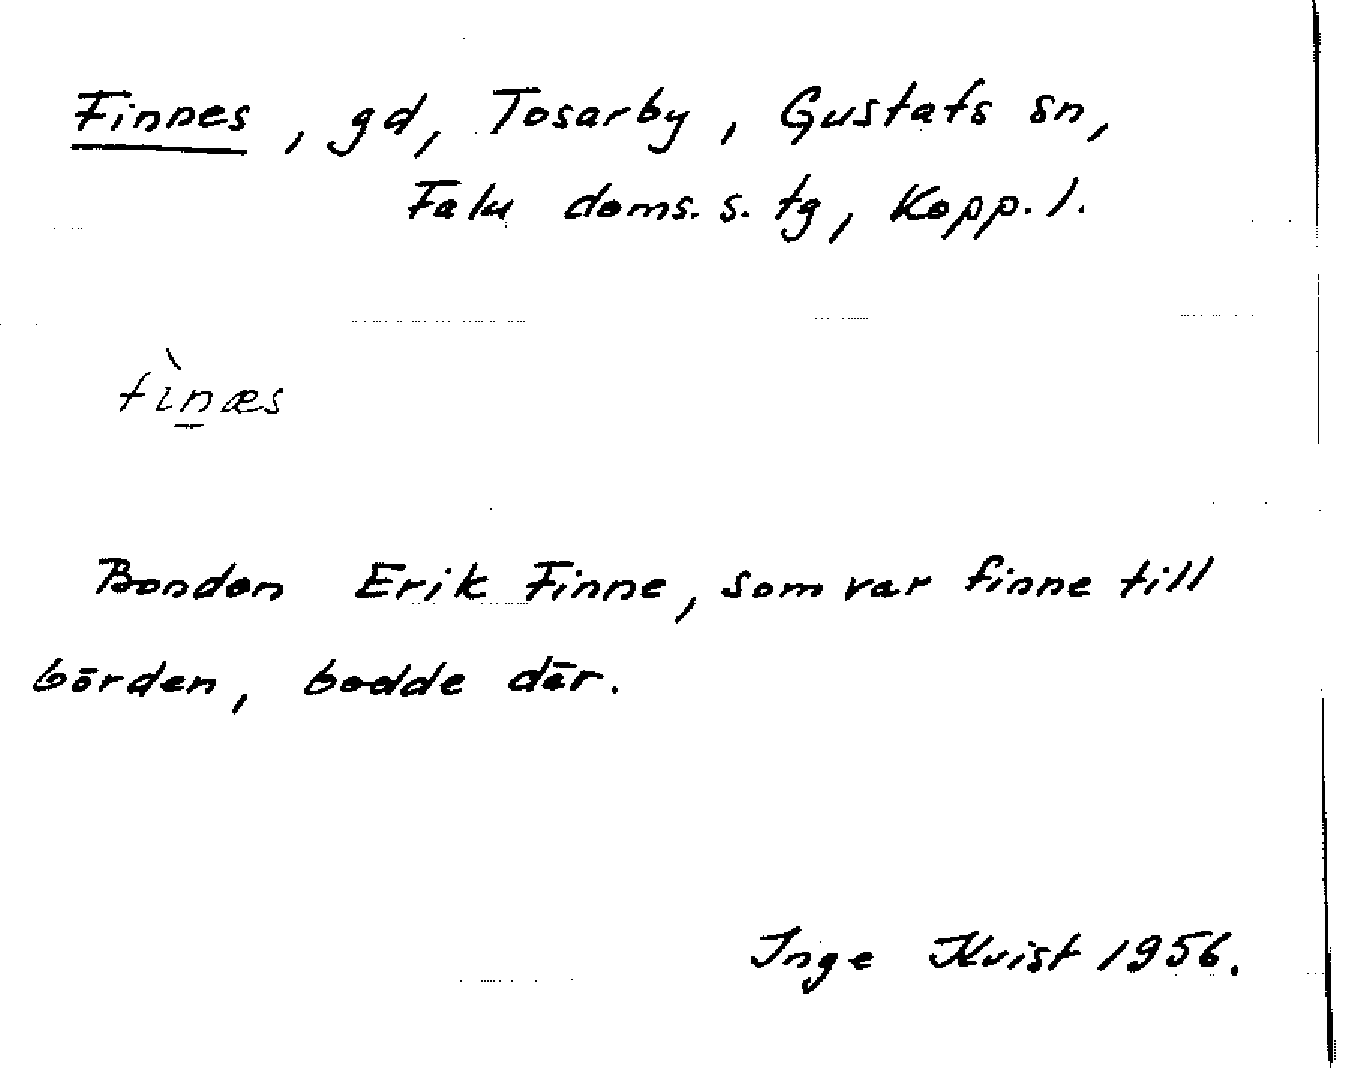 Finnes, gd, Tosarby, Gustafs sn,
Falu doms. s. tg, Kopp. l.
fìn̲æs
Bonden Erik Finne, som var finne till
börden, bodde där.
Inge Kvist 1956.